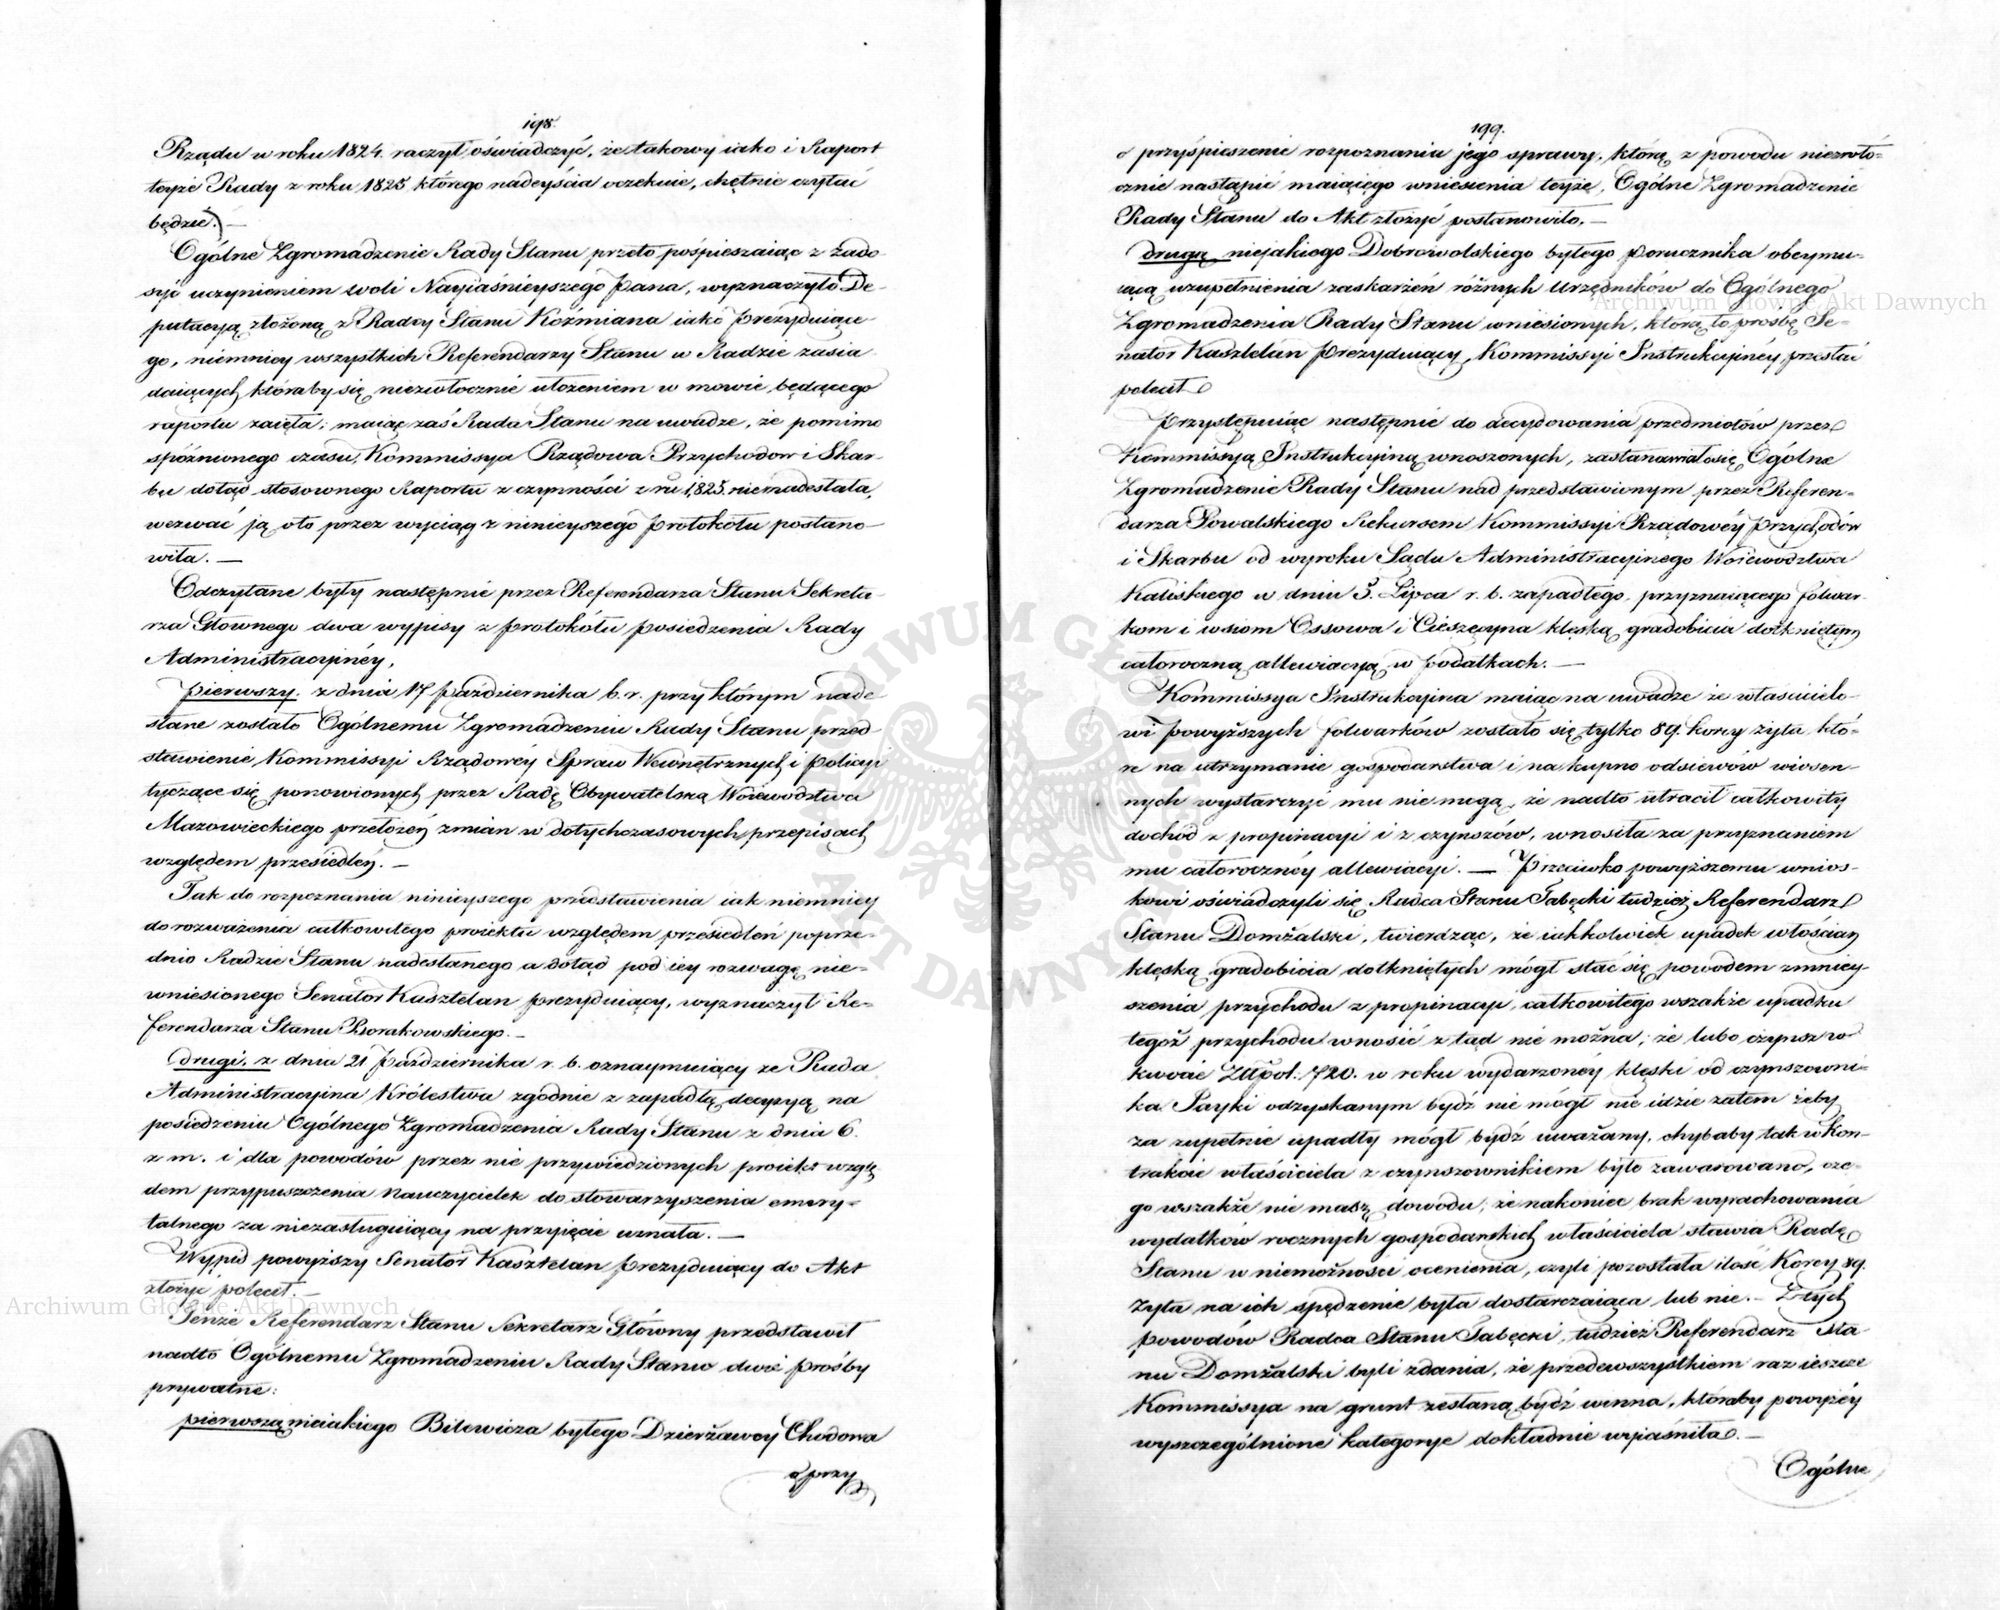 198.
Rządu w roku 1824. raczył oświadczyć, że takowy iako i Raport
teyże Rady z roku 1825 którego nadeyścia oczekuie, chętnie czytać
będzie). —
Ogólne Zgromadzenie Rady Stanu przeto pośpieszaiąc z zado-
syć uczynieniem woli Nayiaśnieyszego Pana, wyznaczyło De-
putacyą złożoną z Radcy Stanu Koźmiana iako prezyduiące-
go, niemniey wszystkich Referendarzy Stanu w Radzie zasia
daiących, któraby się niezwłocznie ułożeniem w mowie będącego
raportu zaięła; maiąc zaś Rada Stanu na uwadze, że pomimo
spóźnionego czasu, Kommissya Rządowa Przychodów i Skar-
bu dotąd stosownego Raportu z czynności z ru 1825. nienadesłała,
wezwać ją oto przez wyciąg z ninieyszego protokółu postano-
wiła. —
Odczytane były następnie przez Referendarza Stanu Sekreta-
rza Głównego dwa wypisy z protokółu posiedzenia Rady
Administracyinéy,
pierwszy. z dnia 17 października b. r. przy którym nade
słane zostało Ogólnemu Zgromadzeniu Rady Stanu przed-
stawienie Kommissyi Rządowéy Spraw Wewnętrznych i policyi
tyczące się ponowionych przez Radę Obywatelską Woiewództwa
Mazowieckiego przełożeń zmian w dotychczasowych przepisach
względem przesiedleń. —
Tak do rozpoznania ninieyszego przedstawienia iak niemniey
do rozważenia całkowitego proiektu względem przesiedleń poprze-
dnio Radzie Stanu nadesłanego a dotąd pod iey rozwagę nie-
wniesionego Senator Kasztelan prezyduiący, wyznaczył Re-
ferendarza Stanu Borakowskiego. —
drugi. z dnia 21 października r. b. oznaymuiący że Rada
Administracyina Królestwa zgodnie z zapadłą decyzyą na
posiedzeniu Ogólnego Zgromadzenia Rady Stanu z dnia 6.
z. m. i dla powodów przez nie przywiedzionych proiekt wzglę
dem przypuszczenia Nauczycielek do stowarzyszenia emery-
talnego za niezasługuiący na przyięcie uznała. —
Wypis powyższy Senator Kasztelan prezyduiący do Akt
złożyć polecił. —
Tenże Referendarz Stanu Sekretarz Główny przedstawił
nadto Ogólnemu Zgromadzeniu Rady Stanu dwie prośby
prywatne:
pierwszą nieiakiego Bilewicza byłego Dzierżawcy Chodowa
o przy
199.
o przyśpieszenie rozpoznania jego sprawy, którą z powodu niezwło-
cznie nastąpić maiącego wniesienia teyże, Ogólne Zgromadzenie
Rady Stanu do Akt złożyć postanowiło. —
drugą niejakiego Dobrowolskiego byłego porucznika obeymu-
iącą uzupełnienia zaskarżeń różnych Urzędników do Ogólnego
Zgromadzenia Rady Stanu wniesionych, którą to prośbę Se-
nator Kasztelan prezyduiący, Kommissyi Instrukcyinéy przesłać
polecił
Przystępuiąc następnie do decydowania przedmiotów przez
Kommissyą Instrukcyiną wnoszonych, zastanawiało się Ogólne
Zgromadzenie Rady Stanu nad przedstawionym przez Referen-
darza Powalskiego Rekursem Kommissyi Rządowéy Przychodów
i Skarbu od wyroku Sądu Administracyinego Woiewództwa
Kaliskiego w dniu 5. Lipca r. b. zapadłego, przyznaiącego folwar-
kom i wsiom Ossowa i Cieszęcyna klęską gradobicia dotkniętym
całoroczną allewiacyą w podatkach. —
Kommissya Instrukcyina maiąc na uwadze że właścicielo-
wi powyższych folwarków zostało się tylko 89. korcy żyta, któ-
re na utrzymanie gospodarstwa i na kupno odsiewów wiosen-
nych wystarczyć mu nie mogą, że nadto utracił całkowity
dochód z propinacyi i z czynszów, wnosiła za przyznaniem
mu całorocznéy allewiacyi. — Przeciwko powyższemu wnios-
kowi oświadczyli się Radca Stanu Tabęcki tudzież Referendarz
Stanu Domżalski, twierdząc, że iakkolwiek upadek włościan
klęską gradobicia dotkniętych mógł stać się powodem zmniey-
szenia przychodu z propinacyi, całkowitego wszakże upadku
tegoż przychodu wnosić z tąd nie można; że lubo czynsz w
kwocie Złtpol. 720. w roku wydarzonéy klęski od czynszowni-
ka Sayki odzyskanym bydź nie mógł nie idzie zatem żeby
za zupełnie upadły mógł bydź uważany, chybaby tak w Kon-
trakcie właściciela z czynszownikiem było zawarowano, cze-
go wszakże nie masz dowodu; że nakoniec brak wyrachowania
wydatków rocznych gospodarskich właściciela stawia Radę
Stanu w niemożności ocenienia, czyli pozostała ilość Korcy 89.
żyta na ich spędzenie była dostarczaiąca lub nie. — Z tych
powodów Radca Stanu Tabęcki, tudzież Referendarz Sta-
nu Domżalski byli zdania, że przedewszystkiem raz ieszcze
Kommissya na grunt zesłaną bydź winna, któraby powyżéy
wyszczególnione kategorye dokładnie wyiaśniła. —
Ogólne
Archiwum Główne Akt Dawnych
Archiwum Główne Akt Dawnych
ARCHIWUM GŁÓWNE AKT DAWNYCH